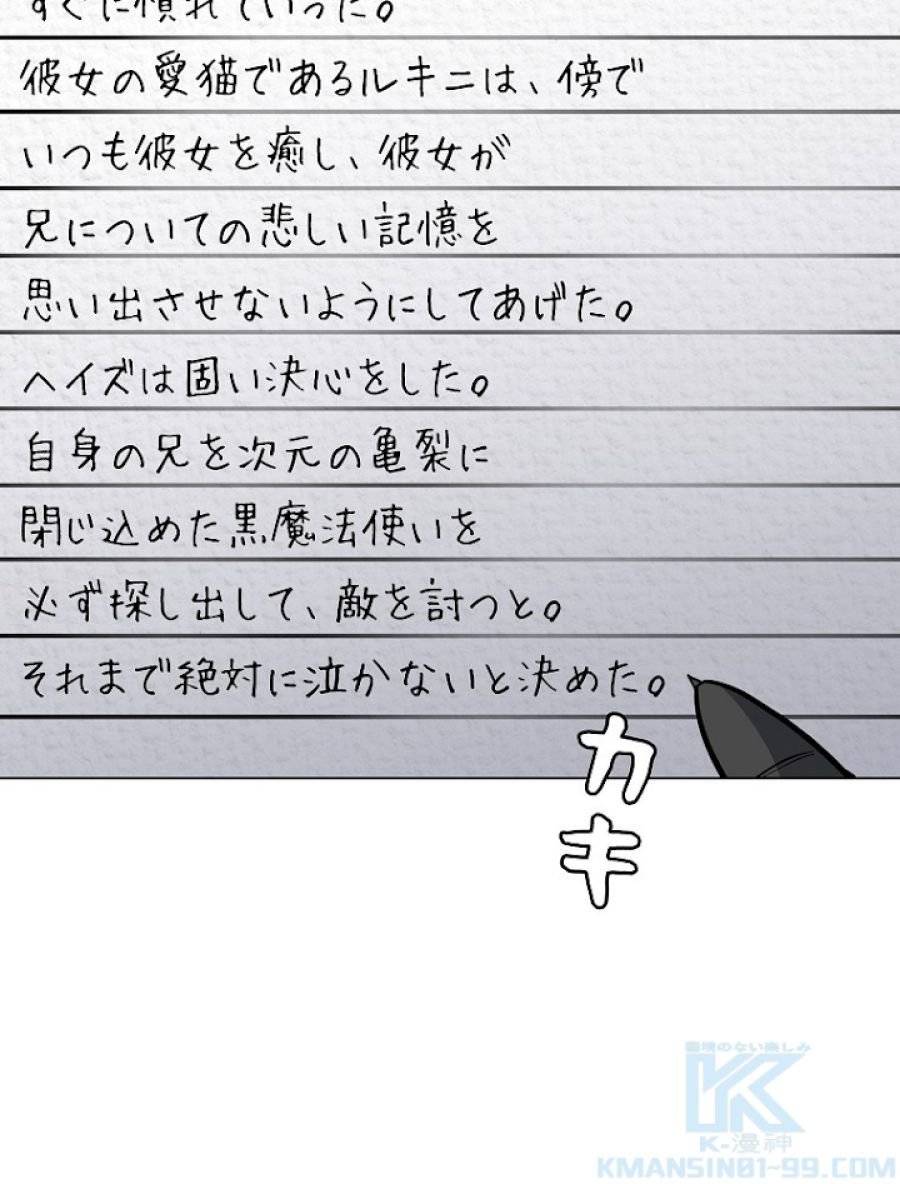 すぐに慣れていった。
彼女の愛猫であるルキニは、傍で
いつも彼女を癒し、彼女が
兄についての悲しい記憶を
思い出させないようにしてあげた。
ヘイズは固い決心をした。
自身の兄を次元の亀裂に
閉じ込めた黒魔法使いを
必ず探し出して、敵を討つと。
それまで絶対に泣かないと決めた。
カキ
K-漫神
KMANSIN01-99.COM